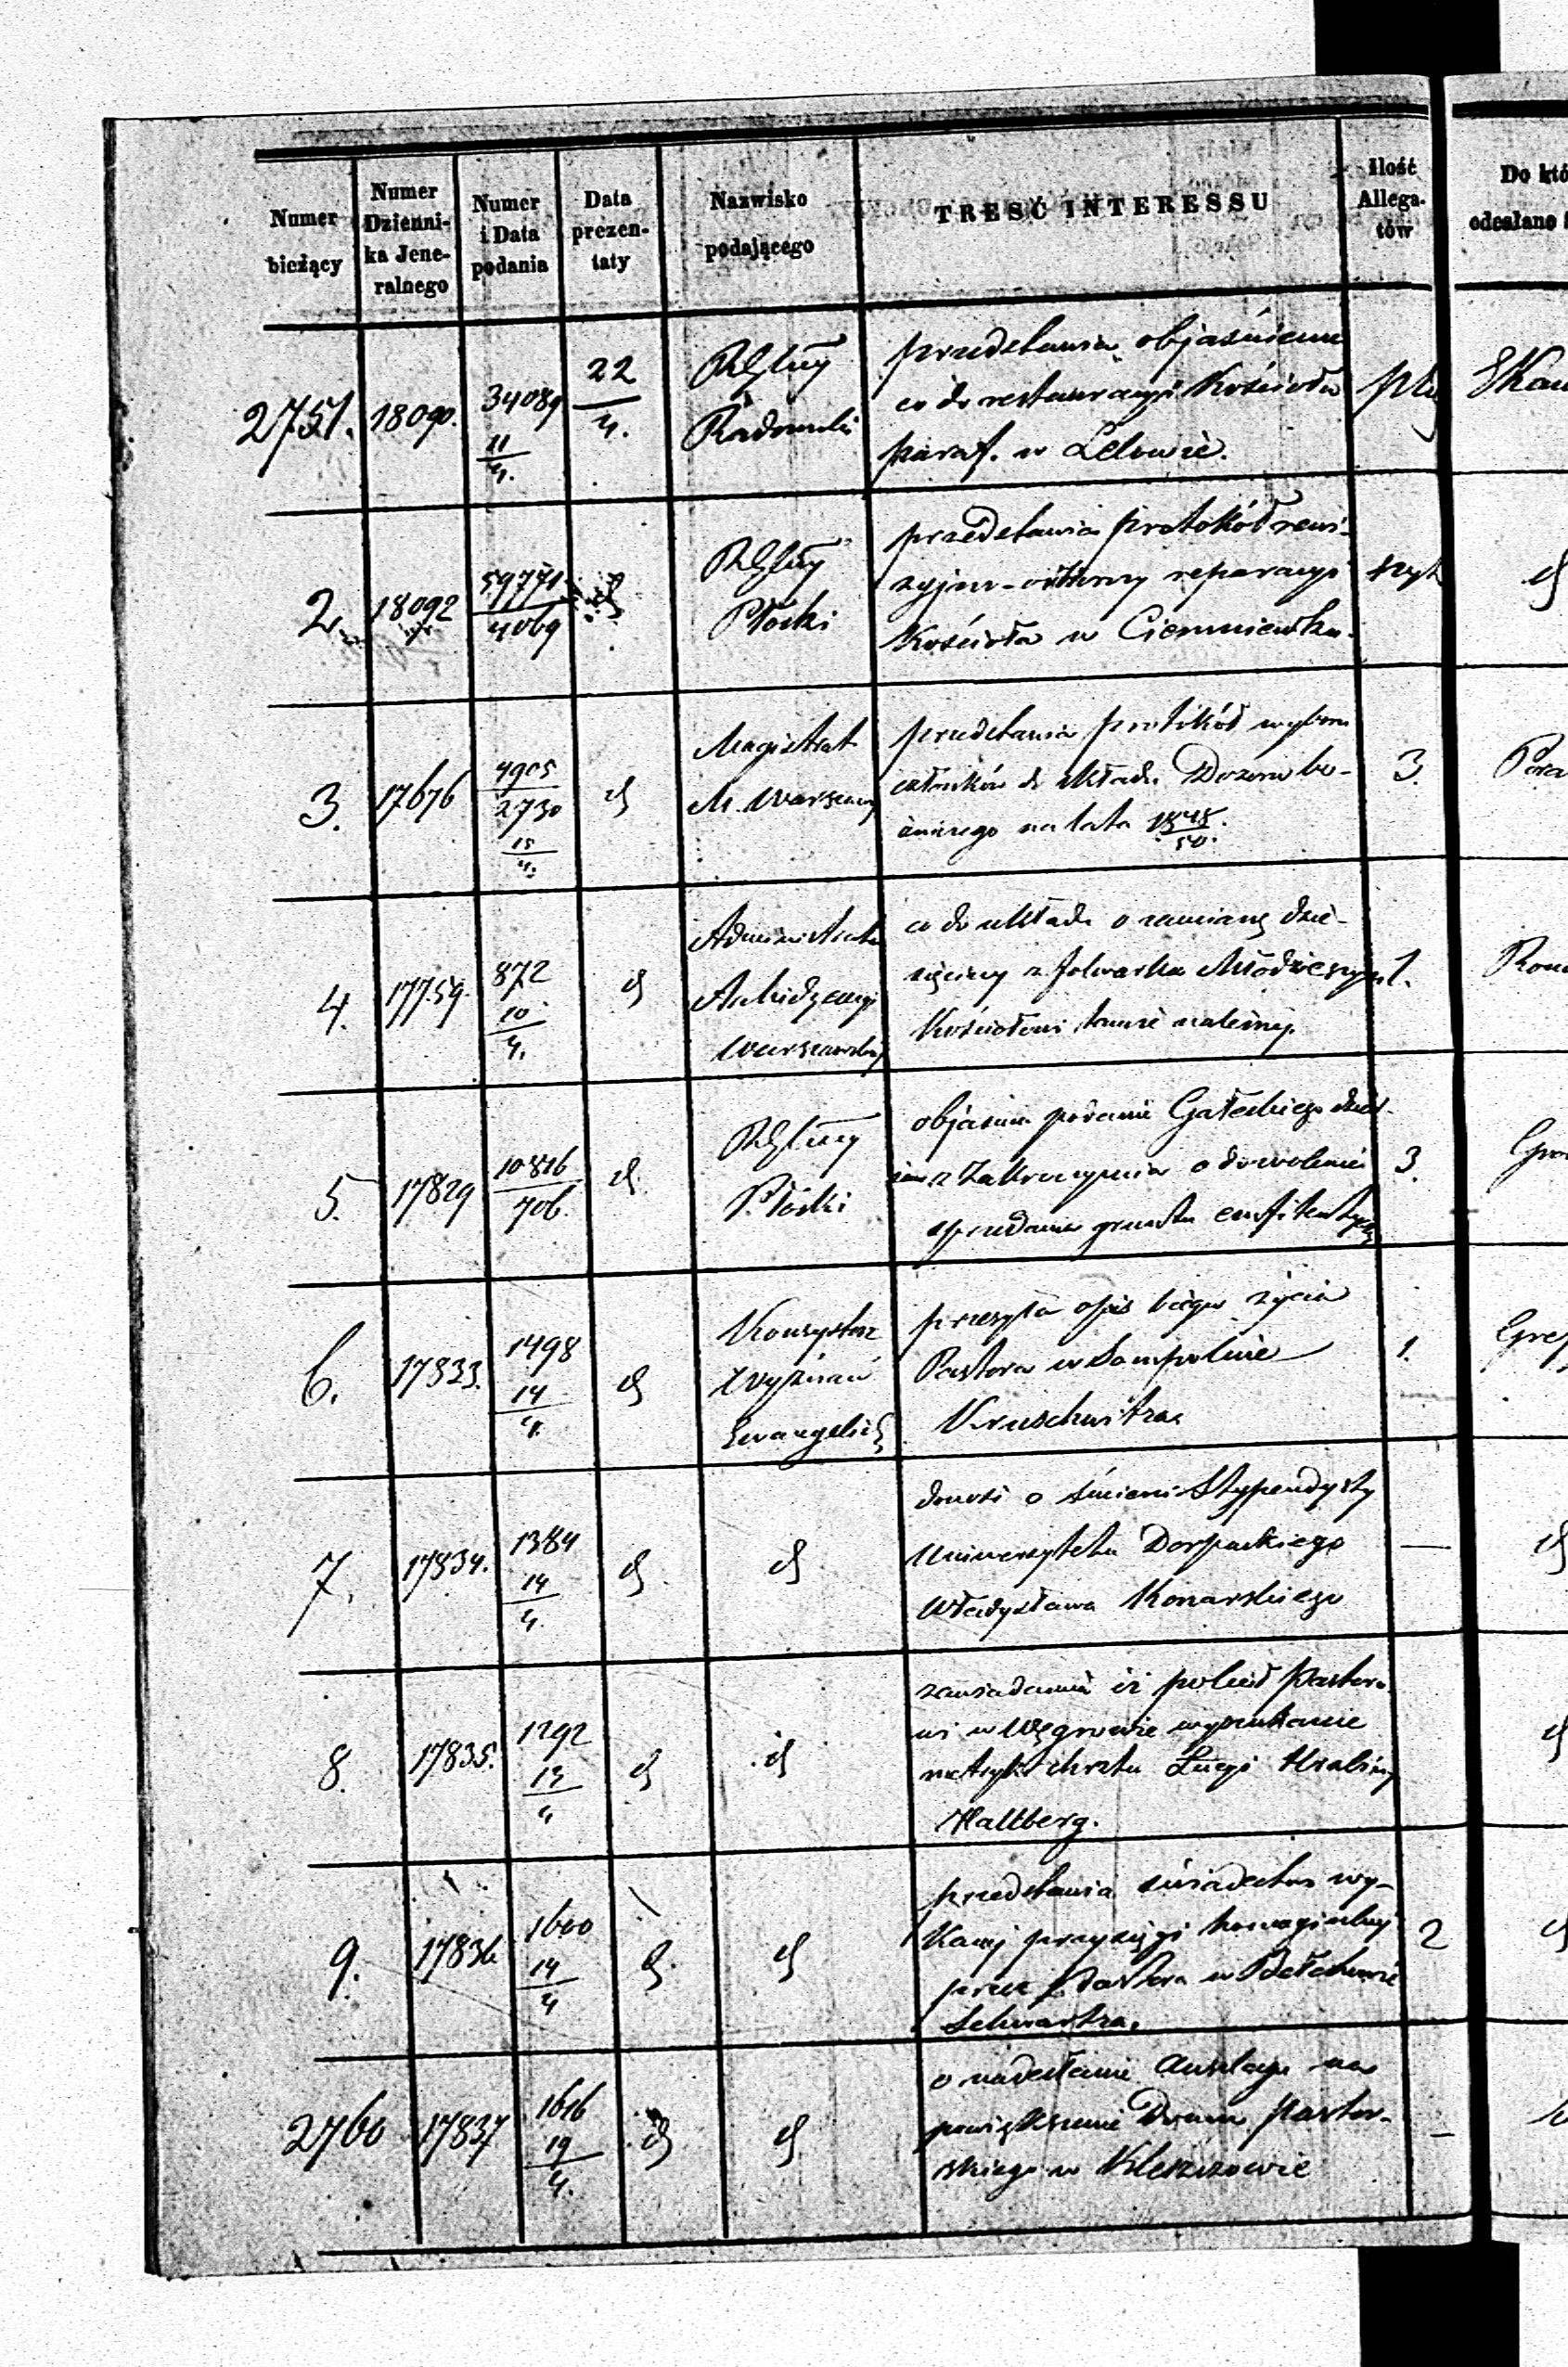 Numer bieżący
Numer Dzienni-ka Jene-ralnego
Numer i Data podania
Data prezen-taty
Nazwisko podającego
TRESĆ INTERESSU
Ilość Allega-tów
Do któ
odesłano
2751. 18090. 34089 11/4. 22/4.
Radomski
przedstawia objaśnienie
co do restauracyi Kościoła
paraf. w Lelowie.
2. 18092 59771/4069
Płocki
przedstawia protokół rewi-
zyjno-odbiorczy reparacyi
Kościoła w Ciemniewku.
3. 17676 4905/2730 15/4.
Magistrat
M. Warszawy
przedstawia protokół wyboru
członków do składu Dozoru bo-
żniczego na lata 1848/50.
3.
4. 17759. 872 10/4.
Administrator
Archidyecezyi
Warszawskiej
co do układu o zamianę dzie-
sięciny z folwarku Młodzieszyn
Kościołowi tamże należnej.
1.
5. 17829 10816/706.
Płocki
objaśnia podanie Gałeckiego
z Zakroczymia o dozwolenie
sprzedania gruntu
3.
6. 17833. 1498 14/4.
Konsystorz
Wyznań
Ewangelick
przesyła opis biegu życia
Pastora w Sompolnie
Kruschwitza
1.
7. 17834. 1384 14/4.
donosi o śmierci Stypendysty
Uniwersytetu Dorpackiego
Władysława Konarskiego
—
8. 17835. 1292 13/4
zawiadamia iż polecił Pastoro
wi w Węgrowie wyszukanie
metryki chrztu Łucyi Hrabiny
Hallberg.
9. 17836 1600 14/4
przedstawia świadectwo wy-
Kanej przysięgi homagialnej
przez Pastora w Bełchatowie
Schwartza.
2
2760 17837 1616 19/4.
o nadesłanie Anszlagu na
powiększenie Domu Pastor-
skiego w Kleszczowie
—